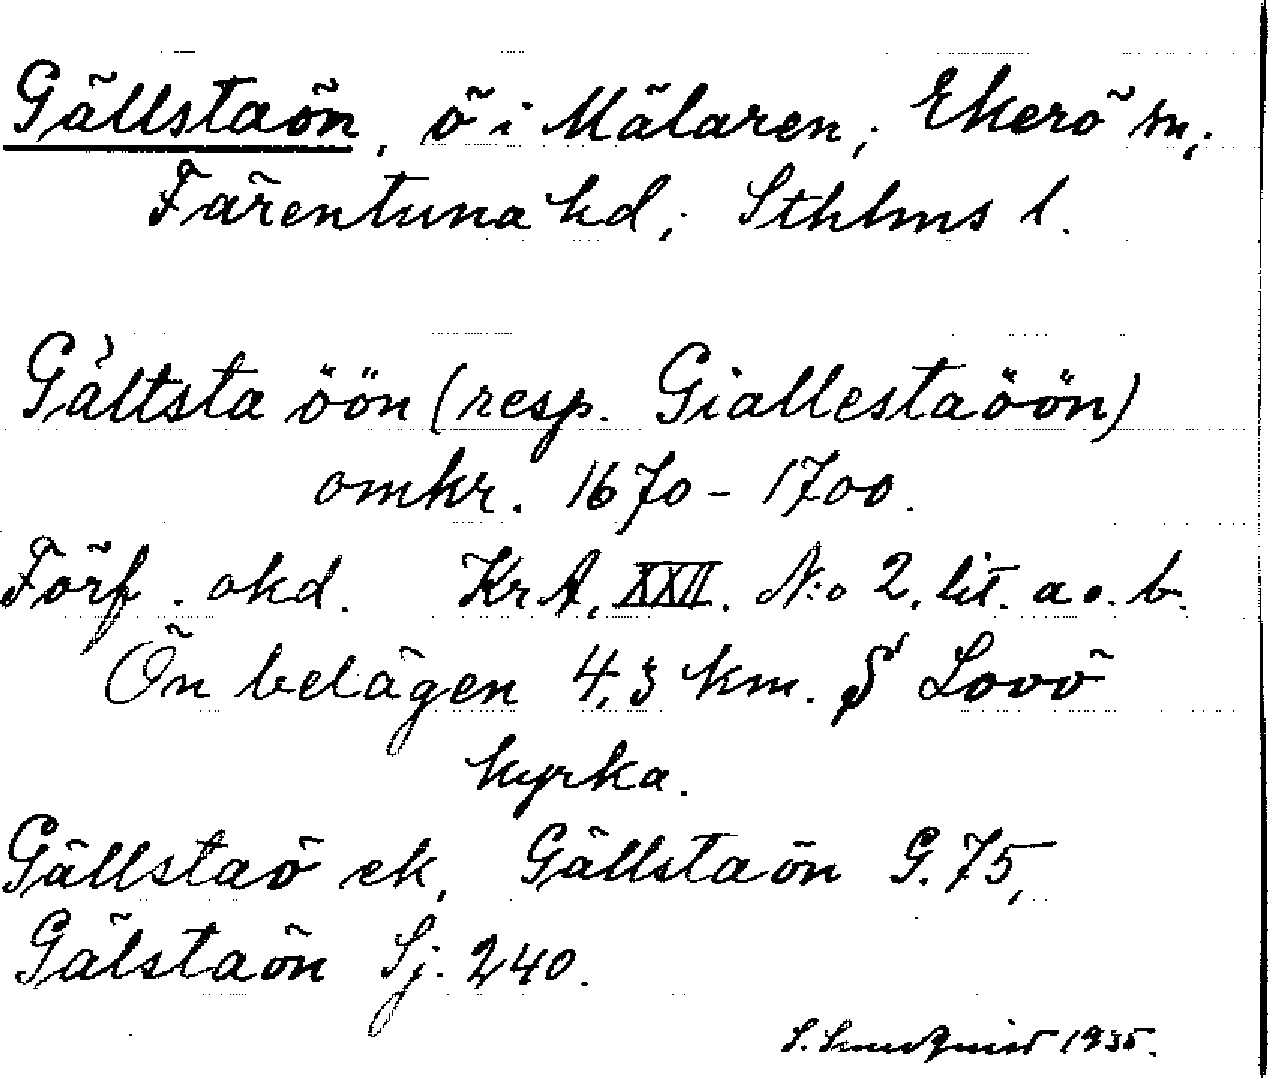 Gällstaön, ö i Mälaren, Ekerö sn,
Färentuna hd, Sthlms l.
Gältsta öön (resp. Giallestaöön)
omkr. 1670-1700.
Förf. okd. Kr A, XXII. N:o 2, lit. a o. b.
Ön belägen 4,3 km. S Lovö
kyrka.
Gällstaö ek, Gällstaön G. 75,
Gälstaön Sj. 240.
1935.